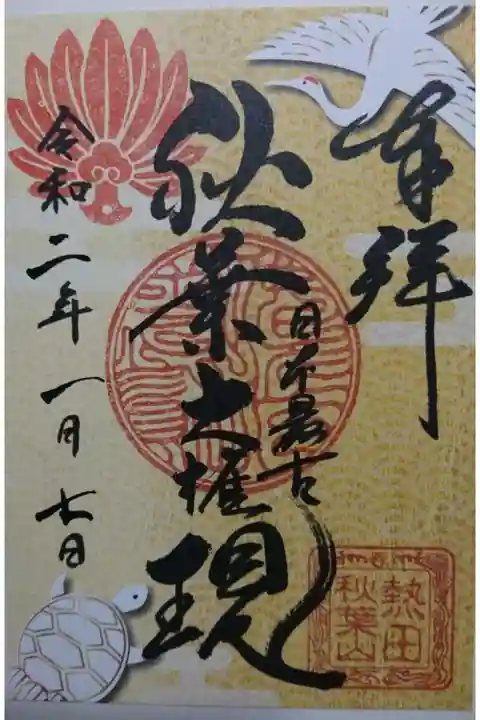 奉拝
日本最古
秋葉大権現
令和二年一月七日
熱田
秋葉山